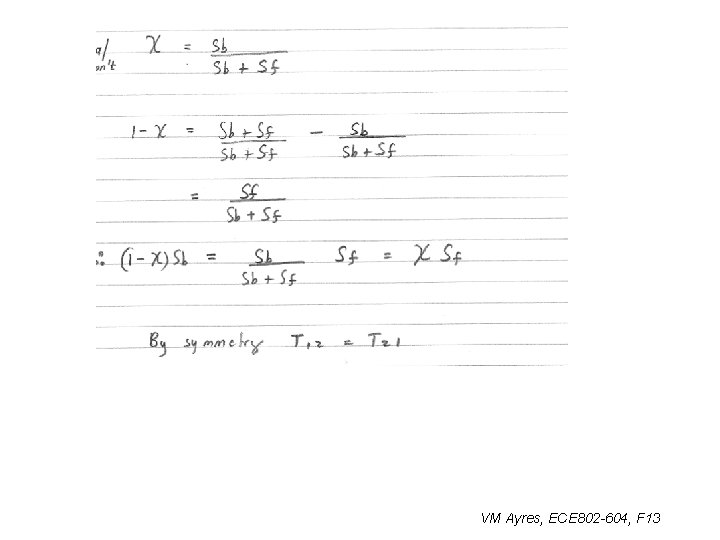 χ = Sb / (Sb + Sf)
1 - χ = (Sb + Sf) / (Sb + Sf) - Sb / (Sb + Sf)
= Sf / (Sb + Sf)
∴ (1 - χ) Sb = Sb / (Sb + Sf) Sf = χ Sf
By symmetry T12 = T21
VM Ayres, ECE802-604, F13